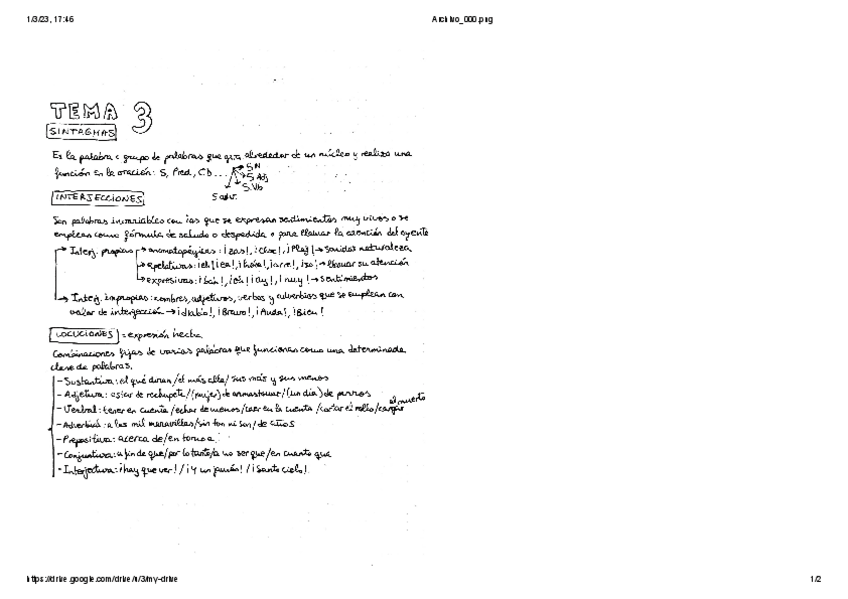 1/3/23, 17:46
Archivo_000.png
TEMA 3
SINTAGMAS
Es la palabra o grupo de palabras que gira alrededor de un núcleo y realiza una
función en la oración: S, Pred, Cb...
SN
S Adj
S. Vb
S adv.
INTERJECCIONES
Son palabras invariables con las que se expresan sentimientos muy vivos o se
emplean como fórmula de saludo o despedida o para llamar la atención del oyente
Interj. propias onomatopéyicas: ¡zas!, ¡clac!, ¡Plaf! → Sonidos naturaleza
apelativas: ¡eh! ¡ea!, ¡hola!, ¡arre!, ¡so! → llamar su atención
expresivas: ¡oh! ¡ay! → sentimientos
Interj. impropias: nombres, adjetivos, verbos y adverbios que se emplean con
valor de interjección → ¡diablo!, ¡Bravo!, ¡Anda!, ¡Bien!
LOCUCIONES = expresión hecha
Combinaciones fijas de varias palabras que funcionan como una determinada
clase de palabras.
- Sustantiva: el qué dirán / el más allá / sus más y sus menos
- Adjetiva: estar de rechupete / (mujer) de armas tomar / (un día) de perros
- Verbal: tener en cuenta / echar de menos / caer en la cuenta / cortar el rollo / cargar el muerto
- Adverbial: a las mil maravillas / sin ton ni son / de
- Prepositiva: acerca de / en torno a
- Conjuntiva: a fin de que / por lo tanto / a no ser que / en cuanto que
- Interjectiva: ¡hay que ver! / ¡Y un jamón! / ¡Santo cielo!
https://drive.google.com/drive/u/3/my-drive
1/2